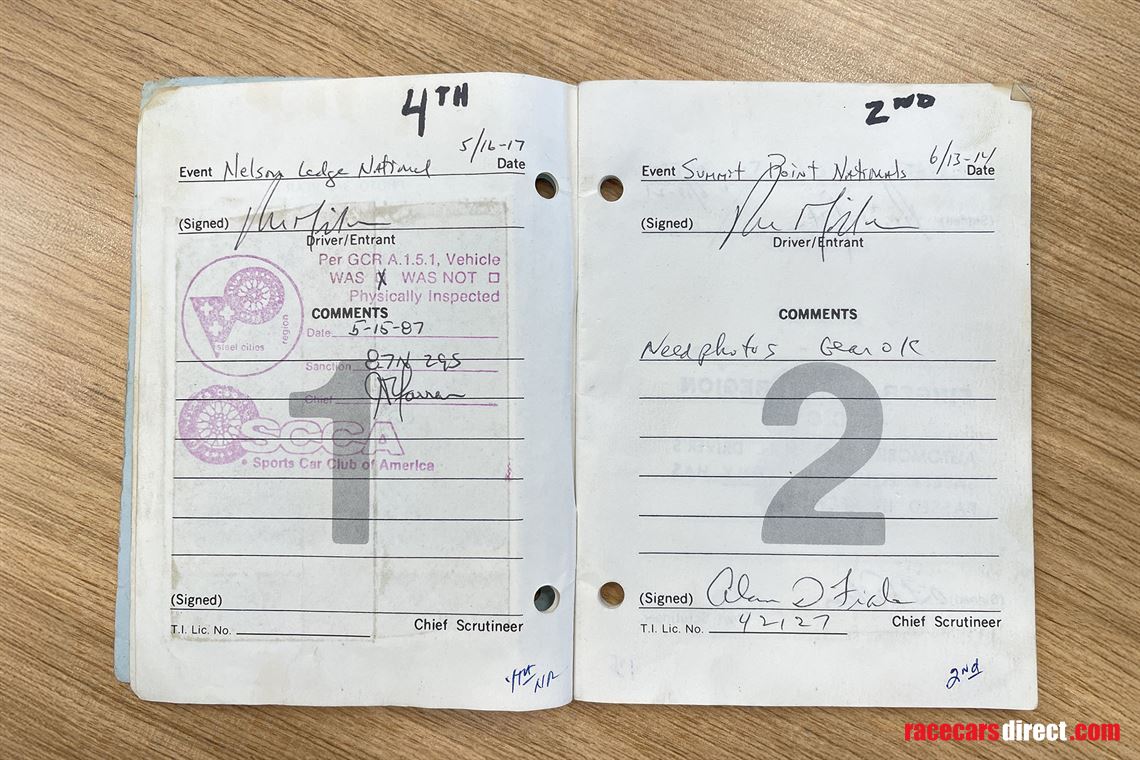 4TH
5/16-17
Event Nelson Ledge National Date
(Signed)
Driver/Entrant
Per GCR A.1.5.1, Vehicle
WAS X WAS NOT □
Physically Inspected
steel cities region
COMMENTS
Date 5-15-87
Sanction 87N 295
Chief
1
SCCA
• Sports Car Club of America
(Signed)
Chief Scrutineer
T.I. Lic. No.
4TH
2ND
6/13-14
Event Summit Point Nationals Date
(Signed)
Driver/Entrant
COMMENTS
Need photos Gear OK
2
(Signed) Alan D
Chief Scrutineer
T.I. Lic. No. 42127
2nd
racecarsdirect.com